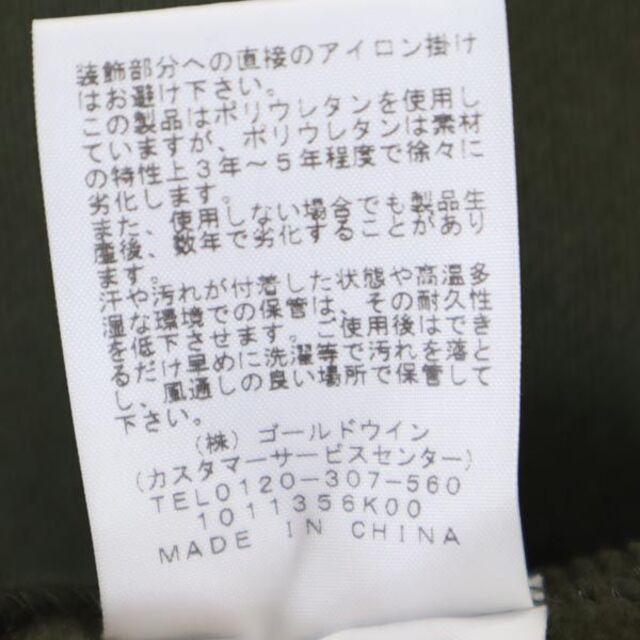 装飾部分への直接のアイロン掛け
はお避け下さい。
この製品はポリウレタンを使用し
ていますが、ポリウレタンは素材
の特性上3年～5年程度で徐々に
劣化します。
また、使用しない場合でも製品生
産後、数年で劣化することがあり
ます。
汗や汚れが付着した状態や高温多
湿な環境での保管は、その耐久性
を低下させます。ご使用後はでき
るだけ早めに洗濯等で汚れを落と
し、風通しの良い場所で保管して
下さい。
(株) ゴールドウイン
(カスタマーサービスセンター)
TEL0120-307-560
1011356K00
MADE IN CHINA